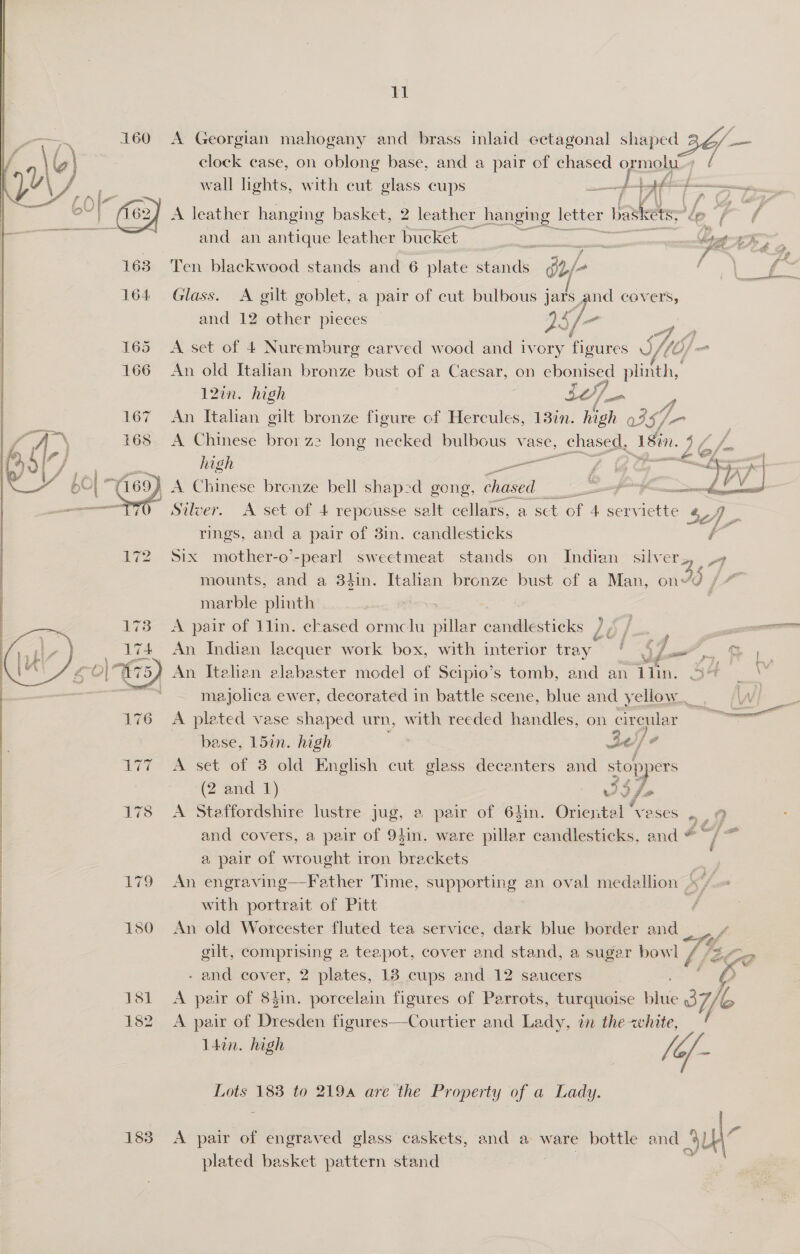 11
160 A Georgian mahogany and brass inlaid octagonal shaped 36/—
clock case, on oblong base, and a pair of chased ormolu
wall lights, with cut glass cups
60/- 162 A leather hanging basket, 2 leather hanging letter baskets,
and an antique leather bucket
163 Ten blackwood stands and 6 plate stands
164 Glass. A gilt goblet, a pair of cut bulbous jars and covers,
and 12 other pieces 25/-
165 A set of 4 Nuremburg carved wood and ivory figures
166 An old Italian bronze bust of a Caesar, on ebonised plinth,
12in. high
167 An Italian gilt bronze figure of Hercules, 13in. high
168 A Chinese bronze long necked bulbous vase, chased, 18in.
high
60/- 169 A Chinese bronze bell shaped gong, chased
170 Silver. A set of 4 repousse salt cellars, a set of 4 serviette
rings, and a pair of 3in. candlesticks
172 Six mother-o'-pearl sweetmeat stands on Indian silver
mounts, and a 3½in. Italian bronze bust of a Man, on
marble plinth
173 A pair of 11in. chased ormolu pillar candlesticks
174 An Indian lacquer work box, with interior tray
175 An Italian alabaster model of Scipio's tomb, and an 11in.
majolica ewer, decorated in battle scene, blue and yellow
176 A plated vase shaped urn, with reeded handles, on circular
base, 15in. high
177 A set of 3 old English cut glass decanters and stoppers
(2 and 1)
178 A Staffordshire lustre jug, a pair of 6½in. Oriental vases
and covers, a pair of 9½in. ware pillar candlesticks, and
a pair of wrought iron brackets
179 An engraving—Father Time, supporting an oval medallion
with portrait of Pitt
180 An old Worcester fluted tea service, dark blue border and
gilt, comprising a teapot, cover and stand, a sugar bowl
and cover, 2 plates, 13 cups and 12 saucers
181 A pair of 8½in. porcelain figures of Parrots, turquoise blue 37/6
182 A pair of Dresden figures—Courtier and Lady, in the white,
14in. high
Lots 183 to 219A are the Property of a Lady.
183 A pair of engraved glass caskets, and a ware bottle and
plated basket pattern stand